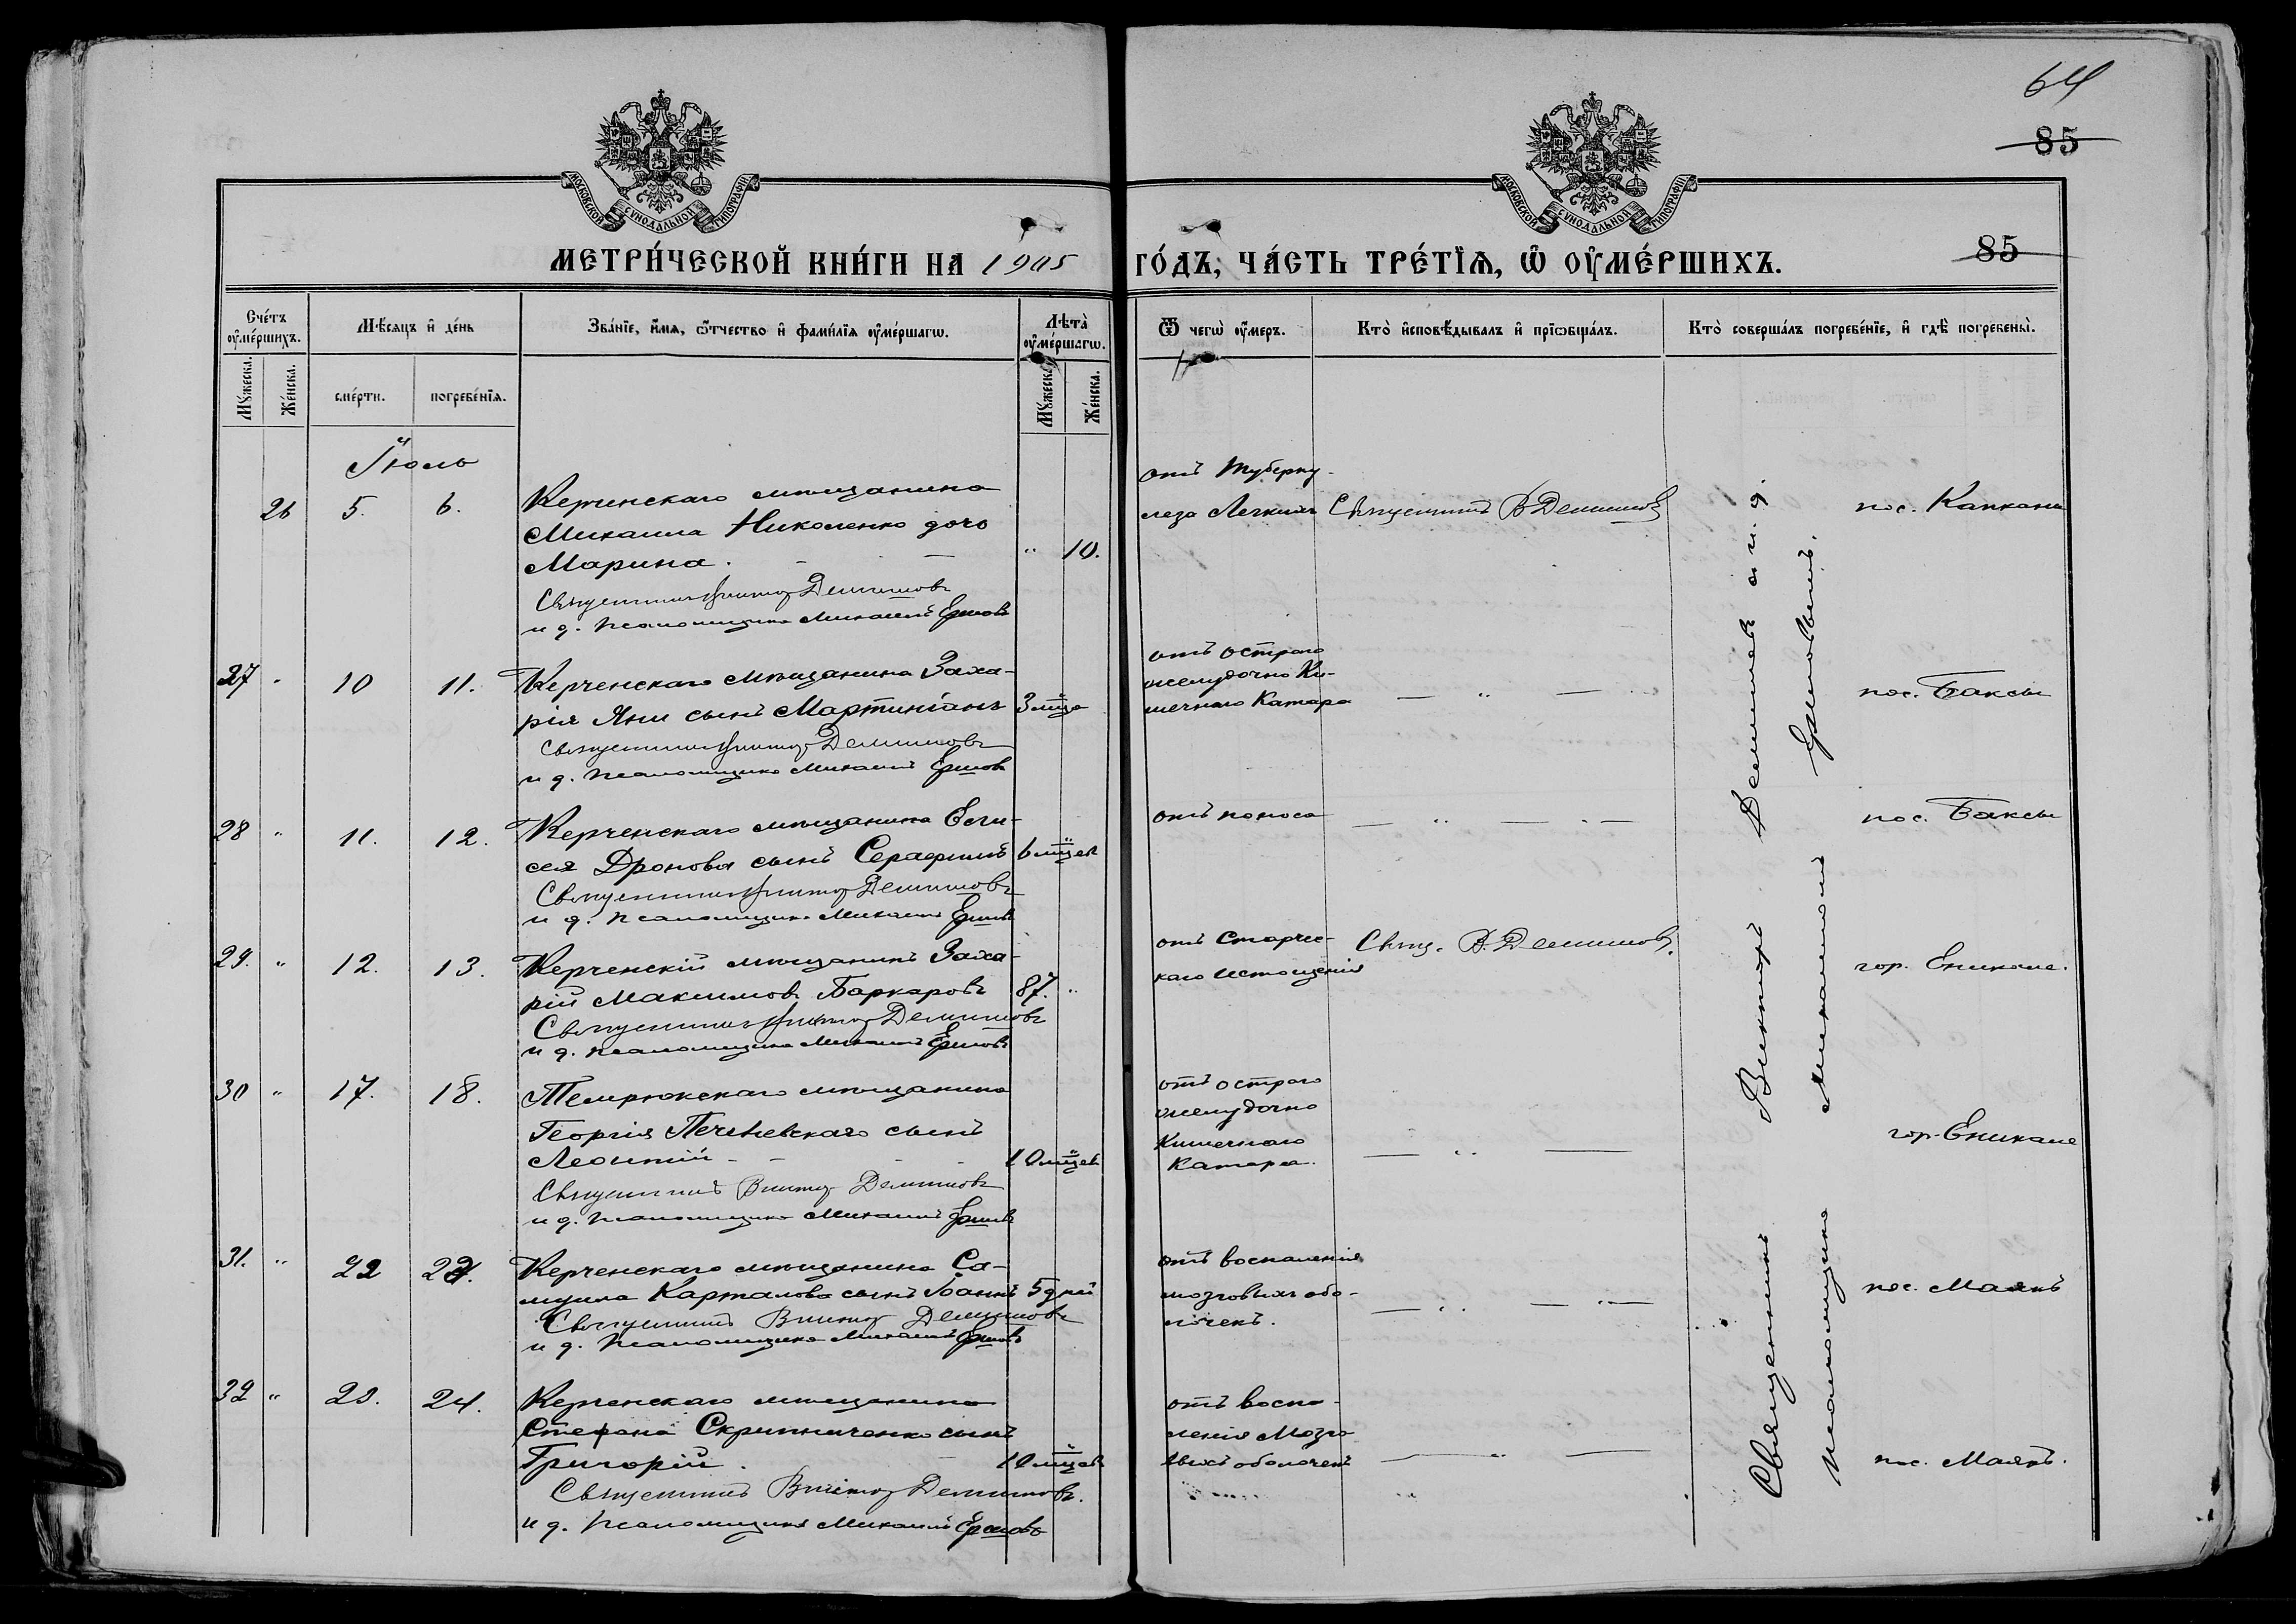 64
85
МОСКОВСКОЙ СѴНОДАЛЬНОЙ ТИПОГРАФІИ
МОСКОВСКОЙ СѴНОДАЛЬНОЙ ТИПОГРАФІИ
МЕТРИ́ЧЕСКОЙ КНИ́ГИ НА 1905 ГО́ДЪ, ЧА́СТЬ ТРЕ́ТІѦ, Ѡ҆ ОУ҆МЕ́РШИХЪ.
85
Сче́тъ оу҆ме́ршихъ.
Мѣ́сяцъ и҆ де́нь
Зва́нїе, и҆́мя, ѻ҆́тчество и҆ фами́лїя оу҆ме́ршагѡ.
Лѣта̀ оу҆ме́ршагѡ.
Ѿ чегѡ̀ оу҆́меръ.
Кто̀ и҆сповѣ́дывалъ и҆ прїѻбща́лъ.
Кто̀ соверша́лъ погребе́нїе, и҆ гдѣ̀ погребены̀.
Мꙋ́жеска.
Же́нска.
сме́рти.
погребе́нїя.
Мꙋ́жеска.
Же́нска.
Іюль
26 5. 6. Керчинскаго мѣщанина
Михаила Николенко дочь
Марина. " 10.
Священникъ Викторъ Демишовъ
и д. псаломщика Михаилъ Ершовъ
отъ туберку-
леза Легкихъ Священникъ В Демишовъ пос. Капканы
27 " 10 11. Керченскаго мѣщанина Заха-
рія Яни сынъ Мартиніанъ 3 мца
Священникъ Викторъ Демишовъ
и д. псаломщика Михаилъ Ершовъ
отъ остраго
желудочно Ки-
шечнаго Катара — " — пос. Баксы
28 " 11. 12. Керченскаго мѣщанина Ели-
сея Дронова сынъ Серафимъ 6 мцев
Священникъ Викторъ Демишовъ
и д. псаломщика Михаилъ Ершовъ
отъ поноса — " — " — пос. Баксы
29. " 12. 13. Керченскій мѣщанинъ Заха-
рій Максимовъ Баркаровъ 87. "
Священникъ Викторъ Демишовъ
и д. псаломщика Михаилъ Ершовъ
отъ Старчес-
каго истощенія Свящ. В. Демишовъ. гор. Еникале.
30 " 17. 18. Темрюкскаго мѣщанина
Георгія Печеневскаго сынъ
Леонтій 10 мцев
Священникъ Викторъ Демишовъ
и д. псаломщика Михаилъ Ершовъ
отъ остраго
желудочно
Кишечнаго
Катара. — " — гор. Еникале
31. " 22 Керченскаго мѣщанина Са-
муила Карталова сынъ Іоаннъ 5 дней
Священникъ Викторъ Демишовъ
и д. псаломщика Михаилъ Ершовъ
отъ воспаленія
мозговыхъ обо-
лочекъ. — " — " — пос. Маякъ
32 " 23. 24. Керченскаго мѣщанина
Стефана Скрипниченко сынъ
Григорій. 10 мцев
Священникъ Викторъ Демишовъ.
и д. псаломщика Михаилъ Ершовъ
отъ воспа-
ленія Мозго-
выхъ оболочекъ — " — пос. Маякъ.
Священникъ Викторъ Демишовъ и и. д.
псаломщика Михаиломъ Ершовымъ.